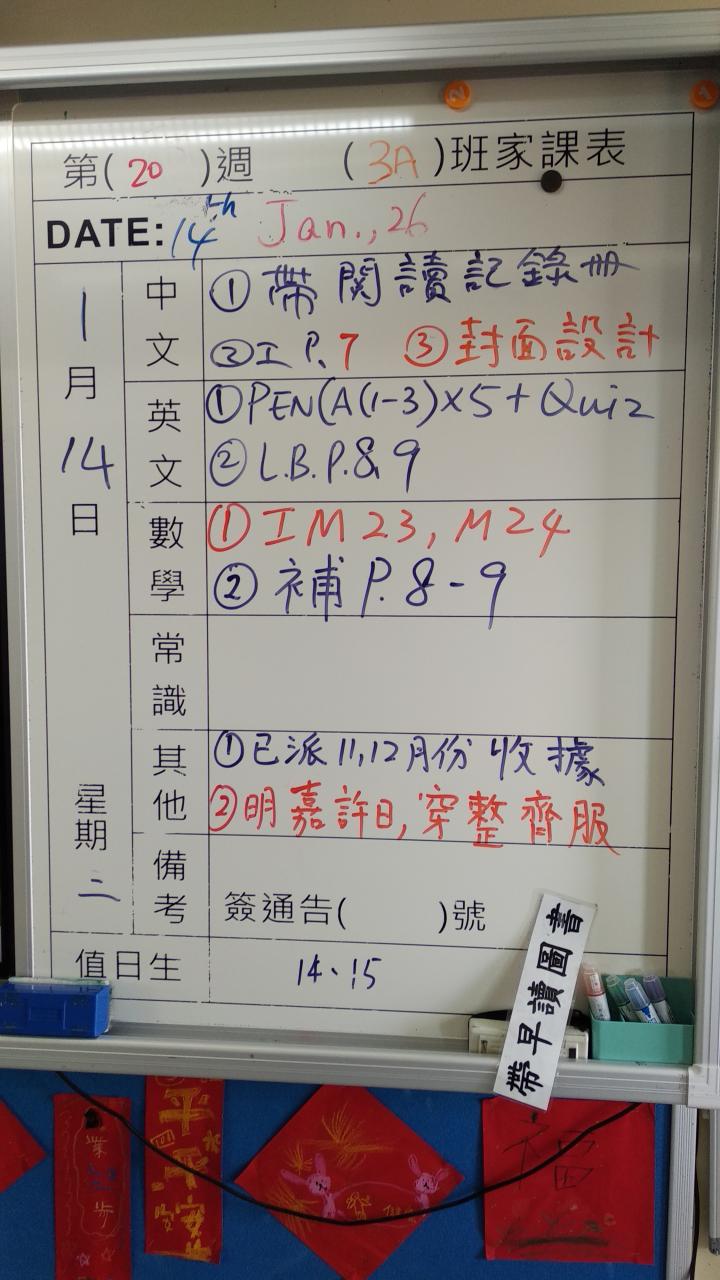 第(20)週 (3A)班家課表
DATE: 14th Jan., 26
1月14日 星期二
中文
①帶閱讀記錄册
②工P.7 ③封面設計
英文
①PEN(A(1-3)×5+Quiz
②L.B.P.8,9
數學
①工M23, M24
②補P.8-9
常識
其他
①已派11,12月份收據
②明嘉許日,穿整齊服
備考
簽通告( )號
值日生 14、15
帶早讀圖書
平平安安
福